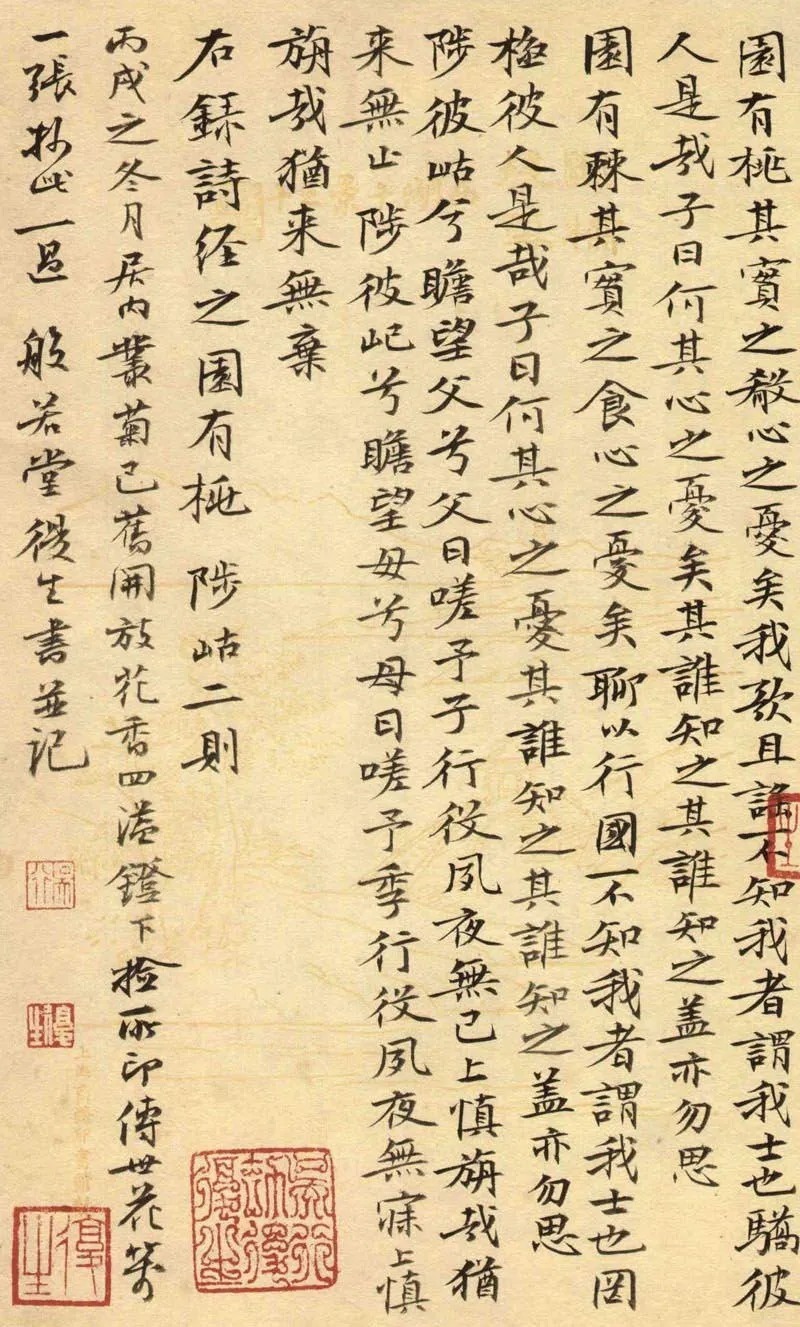 園有桃其實之殽心之憂矣我歌且謠不知我者謂我士也驕彼
人是哉子曰何其心之憂矣其誰知之其誰知之盖亦勿思
園有棘其實之食心之憂矣聊以行國不知我者謂我士也罔
極彼人是哉子曰何其心之憂其誰知之其誰知之盖亦勿思
陟彼岵兮瞻望父兮父曰嗟予子行役夙夜無已上慎旃哉猶
来無止陟彼屺兮瞻望母兮母曰嗟予季行役夙夜無寐上慎
旃哉猶来無棄
右録詩经之園有桃 陟岵二則
丙戌之冬月居内叢菊已舊開放花香四溢鐙下捡所印傳世花箋
一張抄此一過 般若堂復生書並记
復生